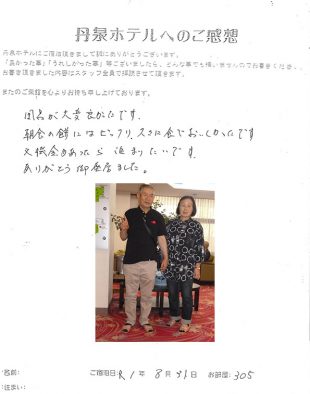 丹泉ホテルへのご感想
丹泉ホテルにご宿泊頂きまして誠にありがとうございます。
「良かった事」「うれしかった事」等ございましたら、どんな事でも構いませんのでお書きください。
お書き頂きました内容はスタッフ全員で拝読させて頂きます。
またのご来館を心よりお待ち申し上げております。
風呂が大変良かったです。
朝食の餅にはビックリ、
でおいしかったです
又機会があったら泊まりたいです。
ありがとう御座居ました。
名前: ご宿泊日 R1年 8月31日 お部屋: 305
住まい: